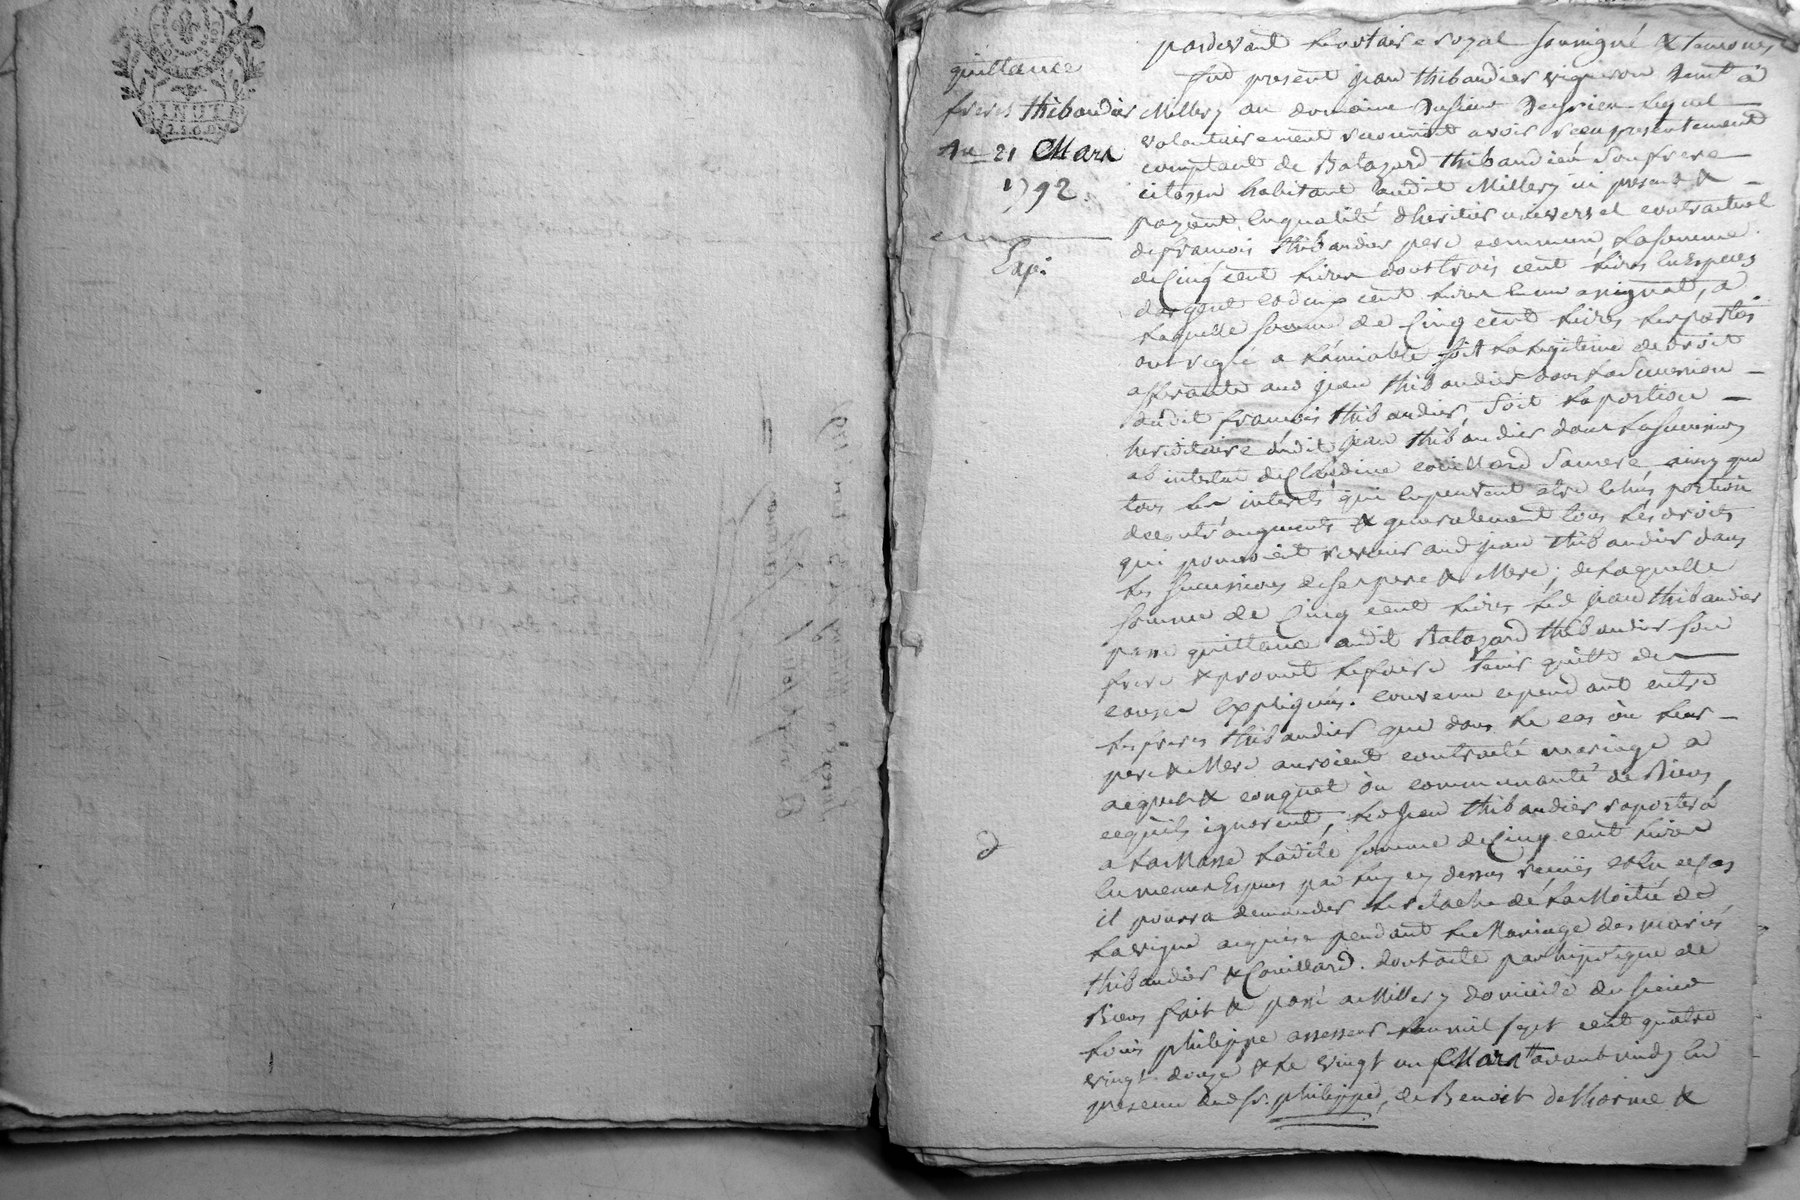 quittance
freres thibaudier
du 21 Mars
1792.
Exp:
pardevant le notaire royal soussigné & temoins
fut present jean thibaudier vigneron demt à
Millery au domaine du sieur lequel
volontairement reconnoit avoir reçu presentement
comptant de Balazard thibaudier son frere
citoyen habitant audit Millery ici present &
payant, en qualité d'heritier universel contractuel
de francois thibaudier pere commun, la somme
de Cinq cent livres dont trois cent livres en especes
d'argent et cent livres en un assignat, a
laquelle somme de Cinq cent livres les parties
ont reglé a l'amiable soit la legitime de droit
afferante aud jean thibaudier dans la succession
dudit francois thibaudier, soit la portion
hereditaire dudit jean thibaudier dans la succession
ab intestat de Claudine couillard sa mere, ainsy que
tous les interets qui en peuvent etre la portion
des augments & generalement tous les droits
qui pourroient revenir aud jean thibaudier dans
les successions de ses pere & Mere; de laquelle
somme de Cinq cent livres led jean thibaudier
passe quittance audit Balazard thibaudier son
frere & promet le faire tenir quitte des
causes expliquées. Convenu cependant entre
les freres thibaudier que dans le cas ou leurs
pere & Mere auroient contracté mariage a
acquet & conquet ou communauté de Biens,
ce qu'ils ignorent, led jean thibaudier raportera
a la Masse ladite somme de Cinq cent livres
en memes Especes par luy cy dessus reçues et en ce cas
il pourra demander le relache de la Moitié de
la vigne acquise pendant le Mariage des mariés
thibaudier & Couillard. dont acte par hipoteque de
Biens fait & passé a Millery domicile du sieur
Louis philippe assesseur l'an mil sept cent quatre
vingt douze & le vingt un Mars avant midy en
presence dud sr. philippe, de Benoit delhorme &